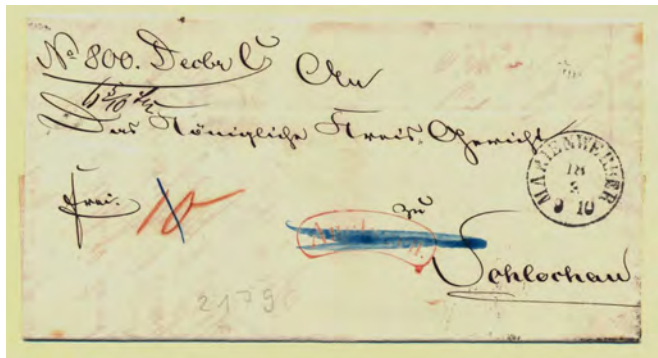 No 800. Decbr C
An
Das Königliche Kreis. Gericht
zu
Schlochau
frei.
MARIENWERDER
18
9 10
2179